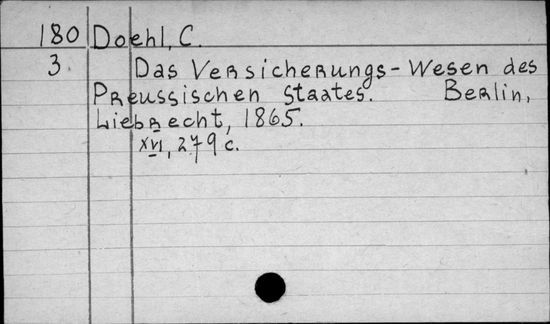 180 Doehl, C.
3. Das Versicherungs-Wesen des
Preussischen Staates. Berlin,
Liebrecht, 1865.
XVI, 279 c.